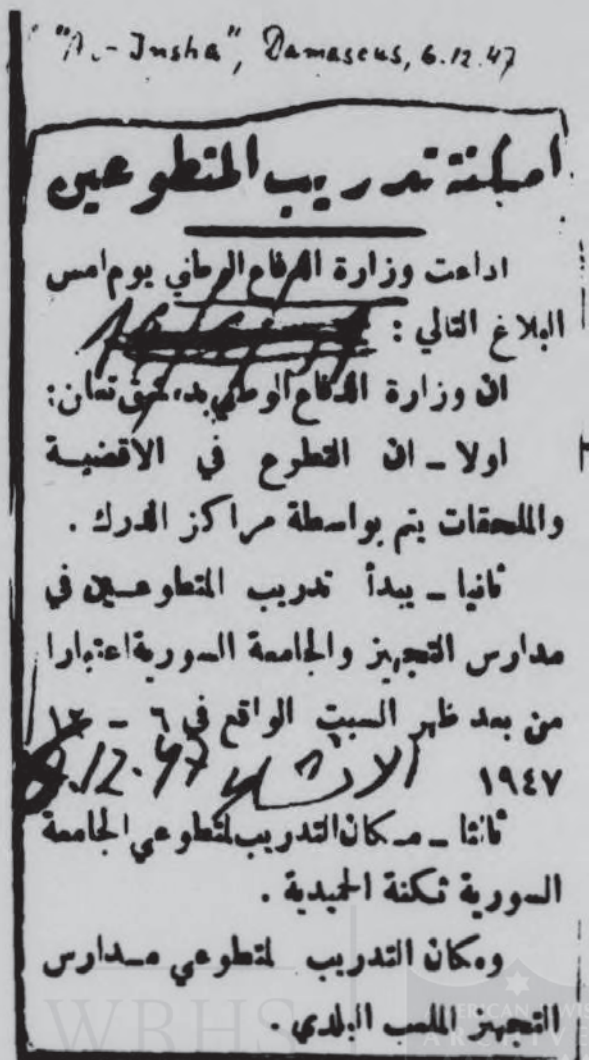 "A.-Insha", Damascus, 6.12.47
امكنة تدريب المتطوعين
اذاعت وزارة الدفاع الوطني يوم امس
البلاغ التالي :
ان وزارة الدفاع الوطني بدمشق تعلن:
اولا ـ ان التطوع في الاقضية
والملحقات يتم بواسطة مراكز الدرك .
ثانيا ـ يبدأ تدريب المتطوعين في
مدارس التجهيز والجامعة السورية اعتبارا
من بعد ظهر السبت الواقع في ٦ ـ ١٢
١٩٤٧ الانشاء 6.12.47
ثالثا ـ مكان التدريب لمتطوعي الجامعة
السورية ثكنة الحميدية .
ومكان التدريب لمتطوعي مدارس
التجهيز الملعب البلدي .
WRHS
AMERICAN JEWISH
ARCHIVES